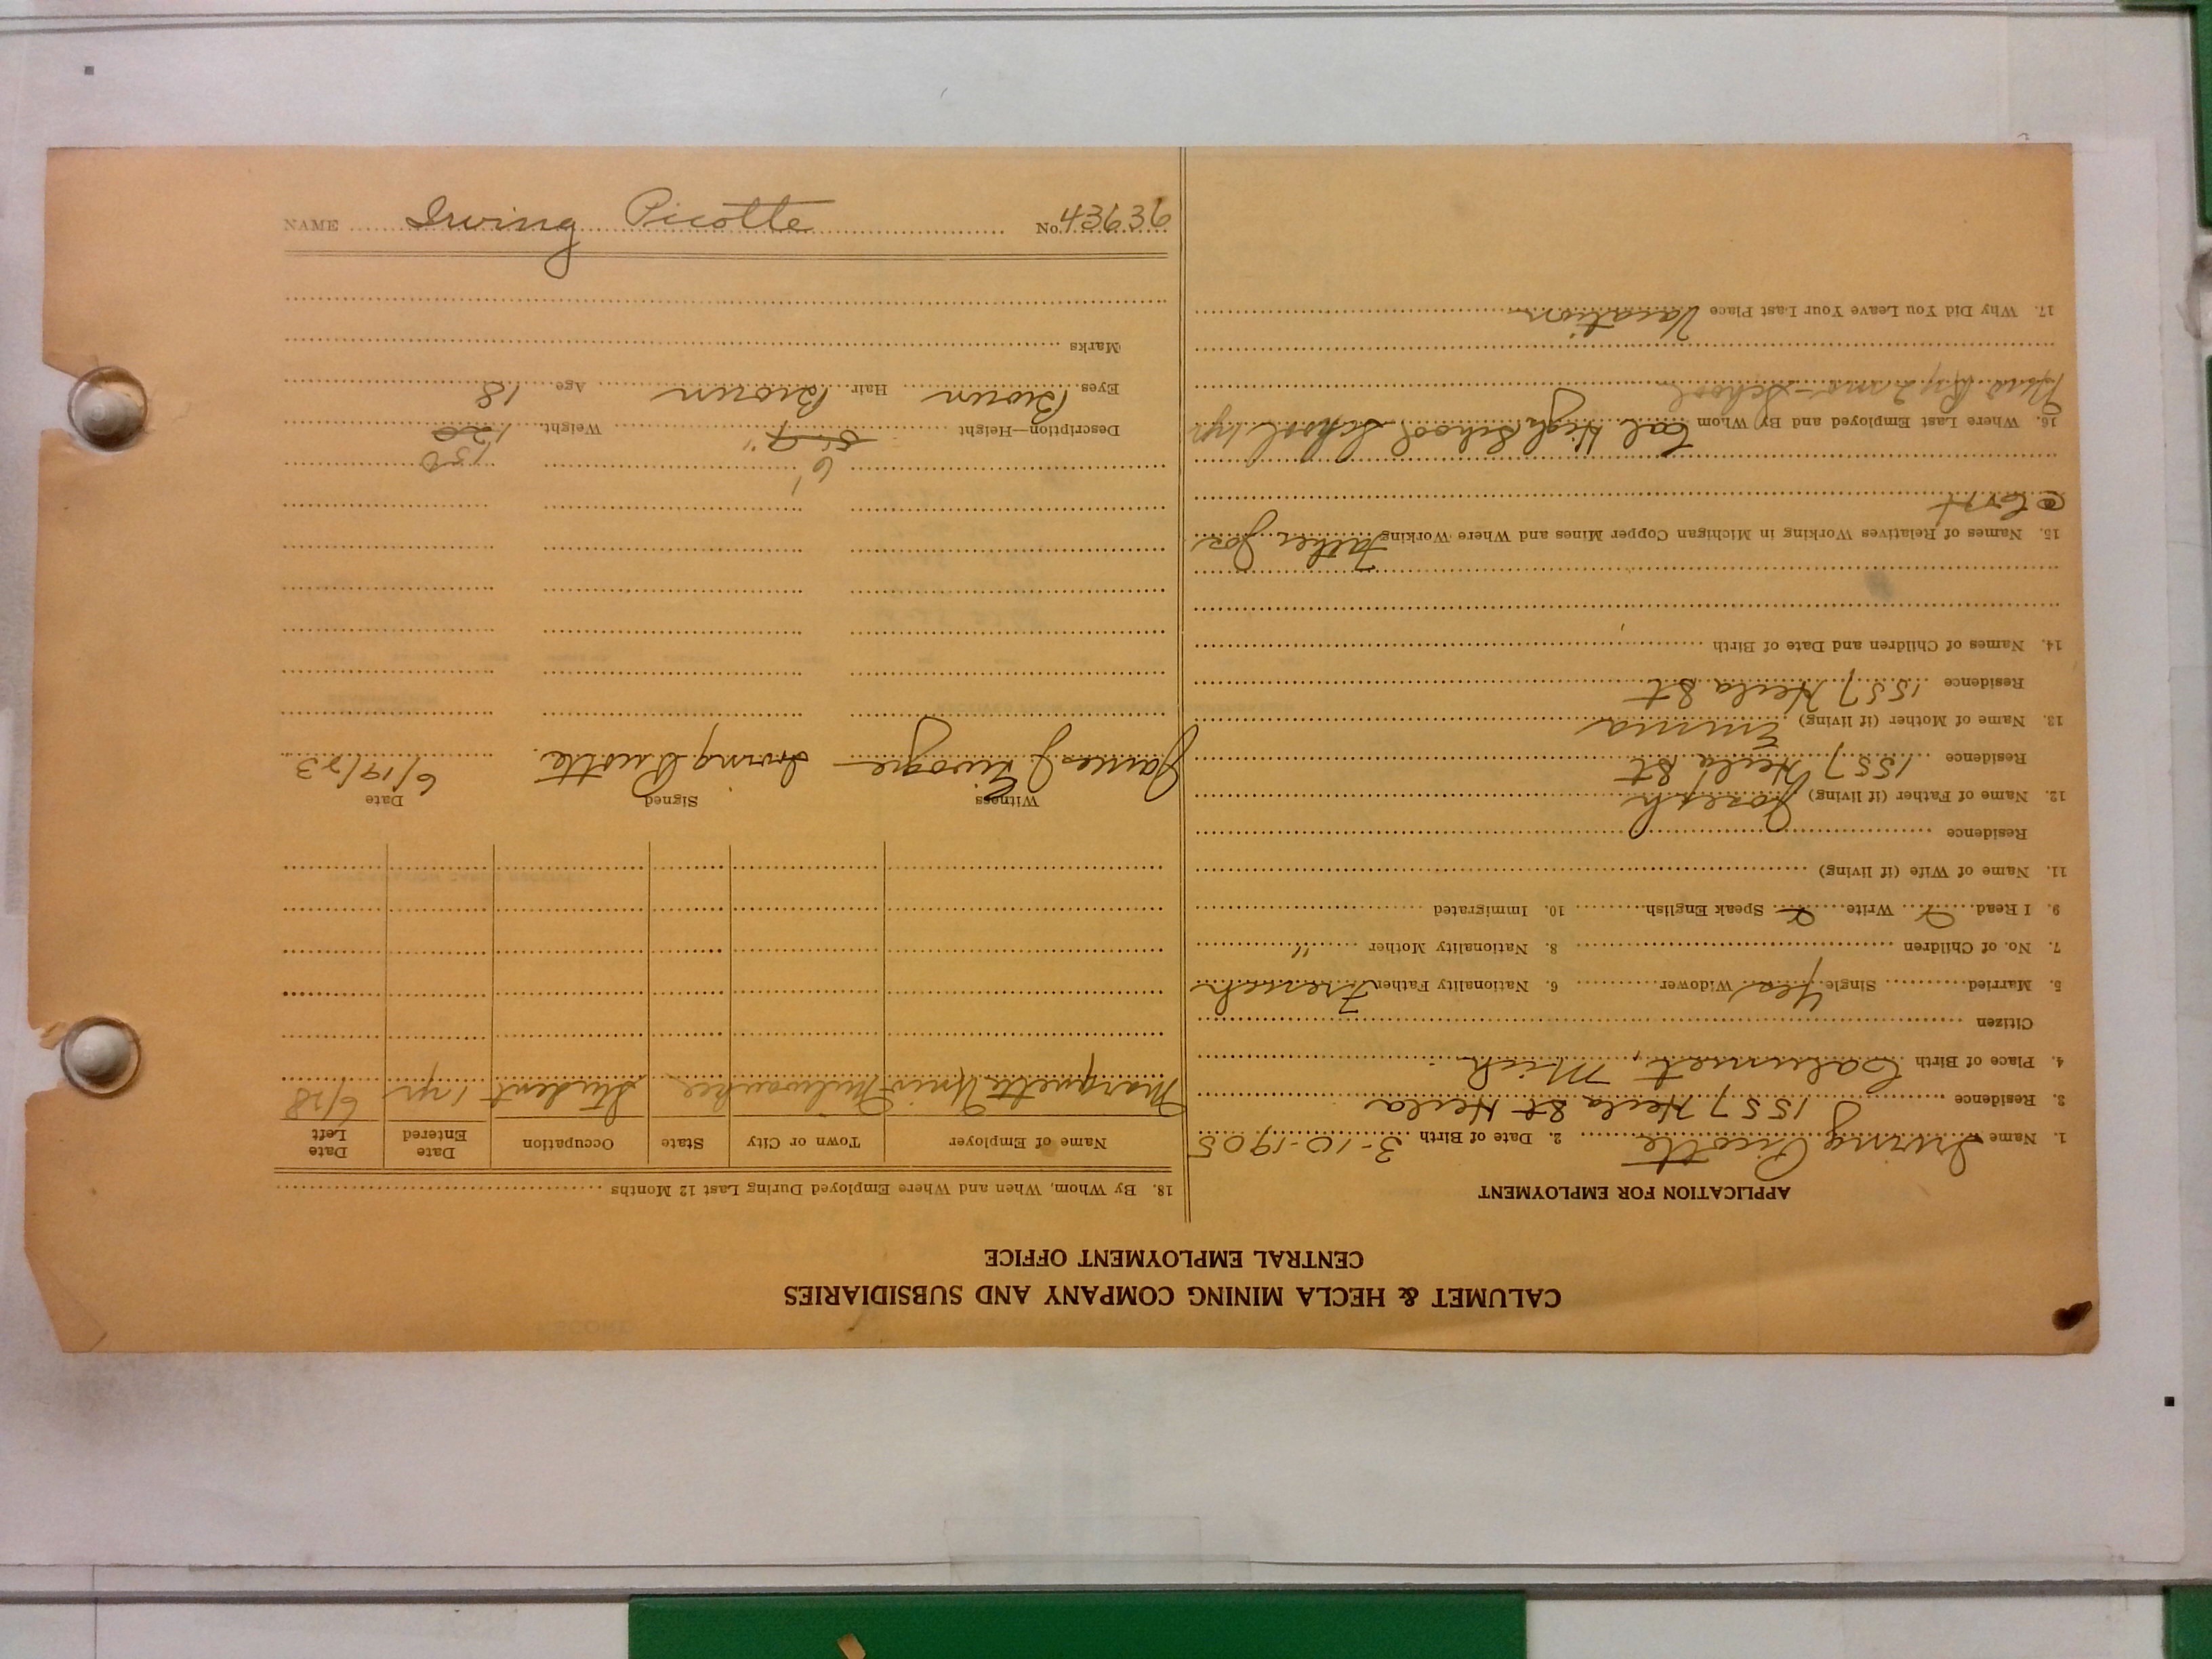 CALUMET & HECLA MINING COMPANY AND SUBSIDIARIES
CENTRAL EMPLOYMENT OFFICE
APPLICATION FOR EMPLOYMENT
1. Name Irving Picotte 2. Date of Birth 3-10-1905
3. Residence 1557 Hecla St Hecla
4. Place of Birth Calumet, Mich.
Citizen
5. Married Single Yes Widower 6. Nationality Father French
7. No. of Children 8. Nationality Mother "
9. I Read Write Speak English 10. Immigrated
11. Name of Wife (if living)
Residence
12. Name of Father (if living) Joseph
Residence 1557 Hecla St
13. Name of Mother (if living) Emma
Residence 1557 Hecla St
14. Names of Children and Date of Birth
15. Names of Relatives Working in Michigan Copper Mines and Where Working Father Jos
16. Where Last Employed and By Whom Cal High School School 1 yr
School
17. Why Did You Leave Your Last Place Vacation
18. By Whom, When and Where Employed During Last 12 Months
Name of Employer Town or City State Occupation Date Entered Date Left
Marquette Univ Milwaukee Student 1 yr 6/28
Witness Signed Date
James J Irving Picotte. 6/19/23
6' 150
Description—Height 5'-9" Weight 120
Eyes Brown Hair Brown Age 18
Marks
NAME Irving Picotte No. 43636